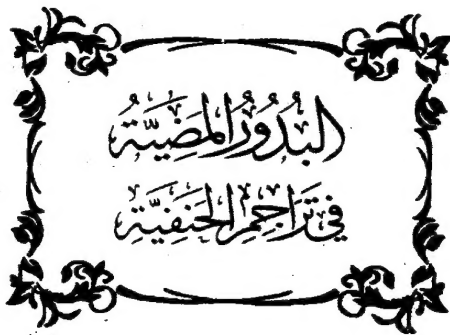 البُدُورُ المَضِيَّة
في تَرَاجِمِ الحَنَفِيَّة